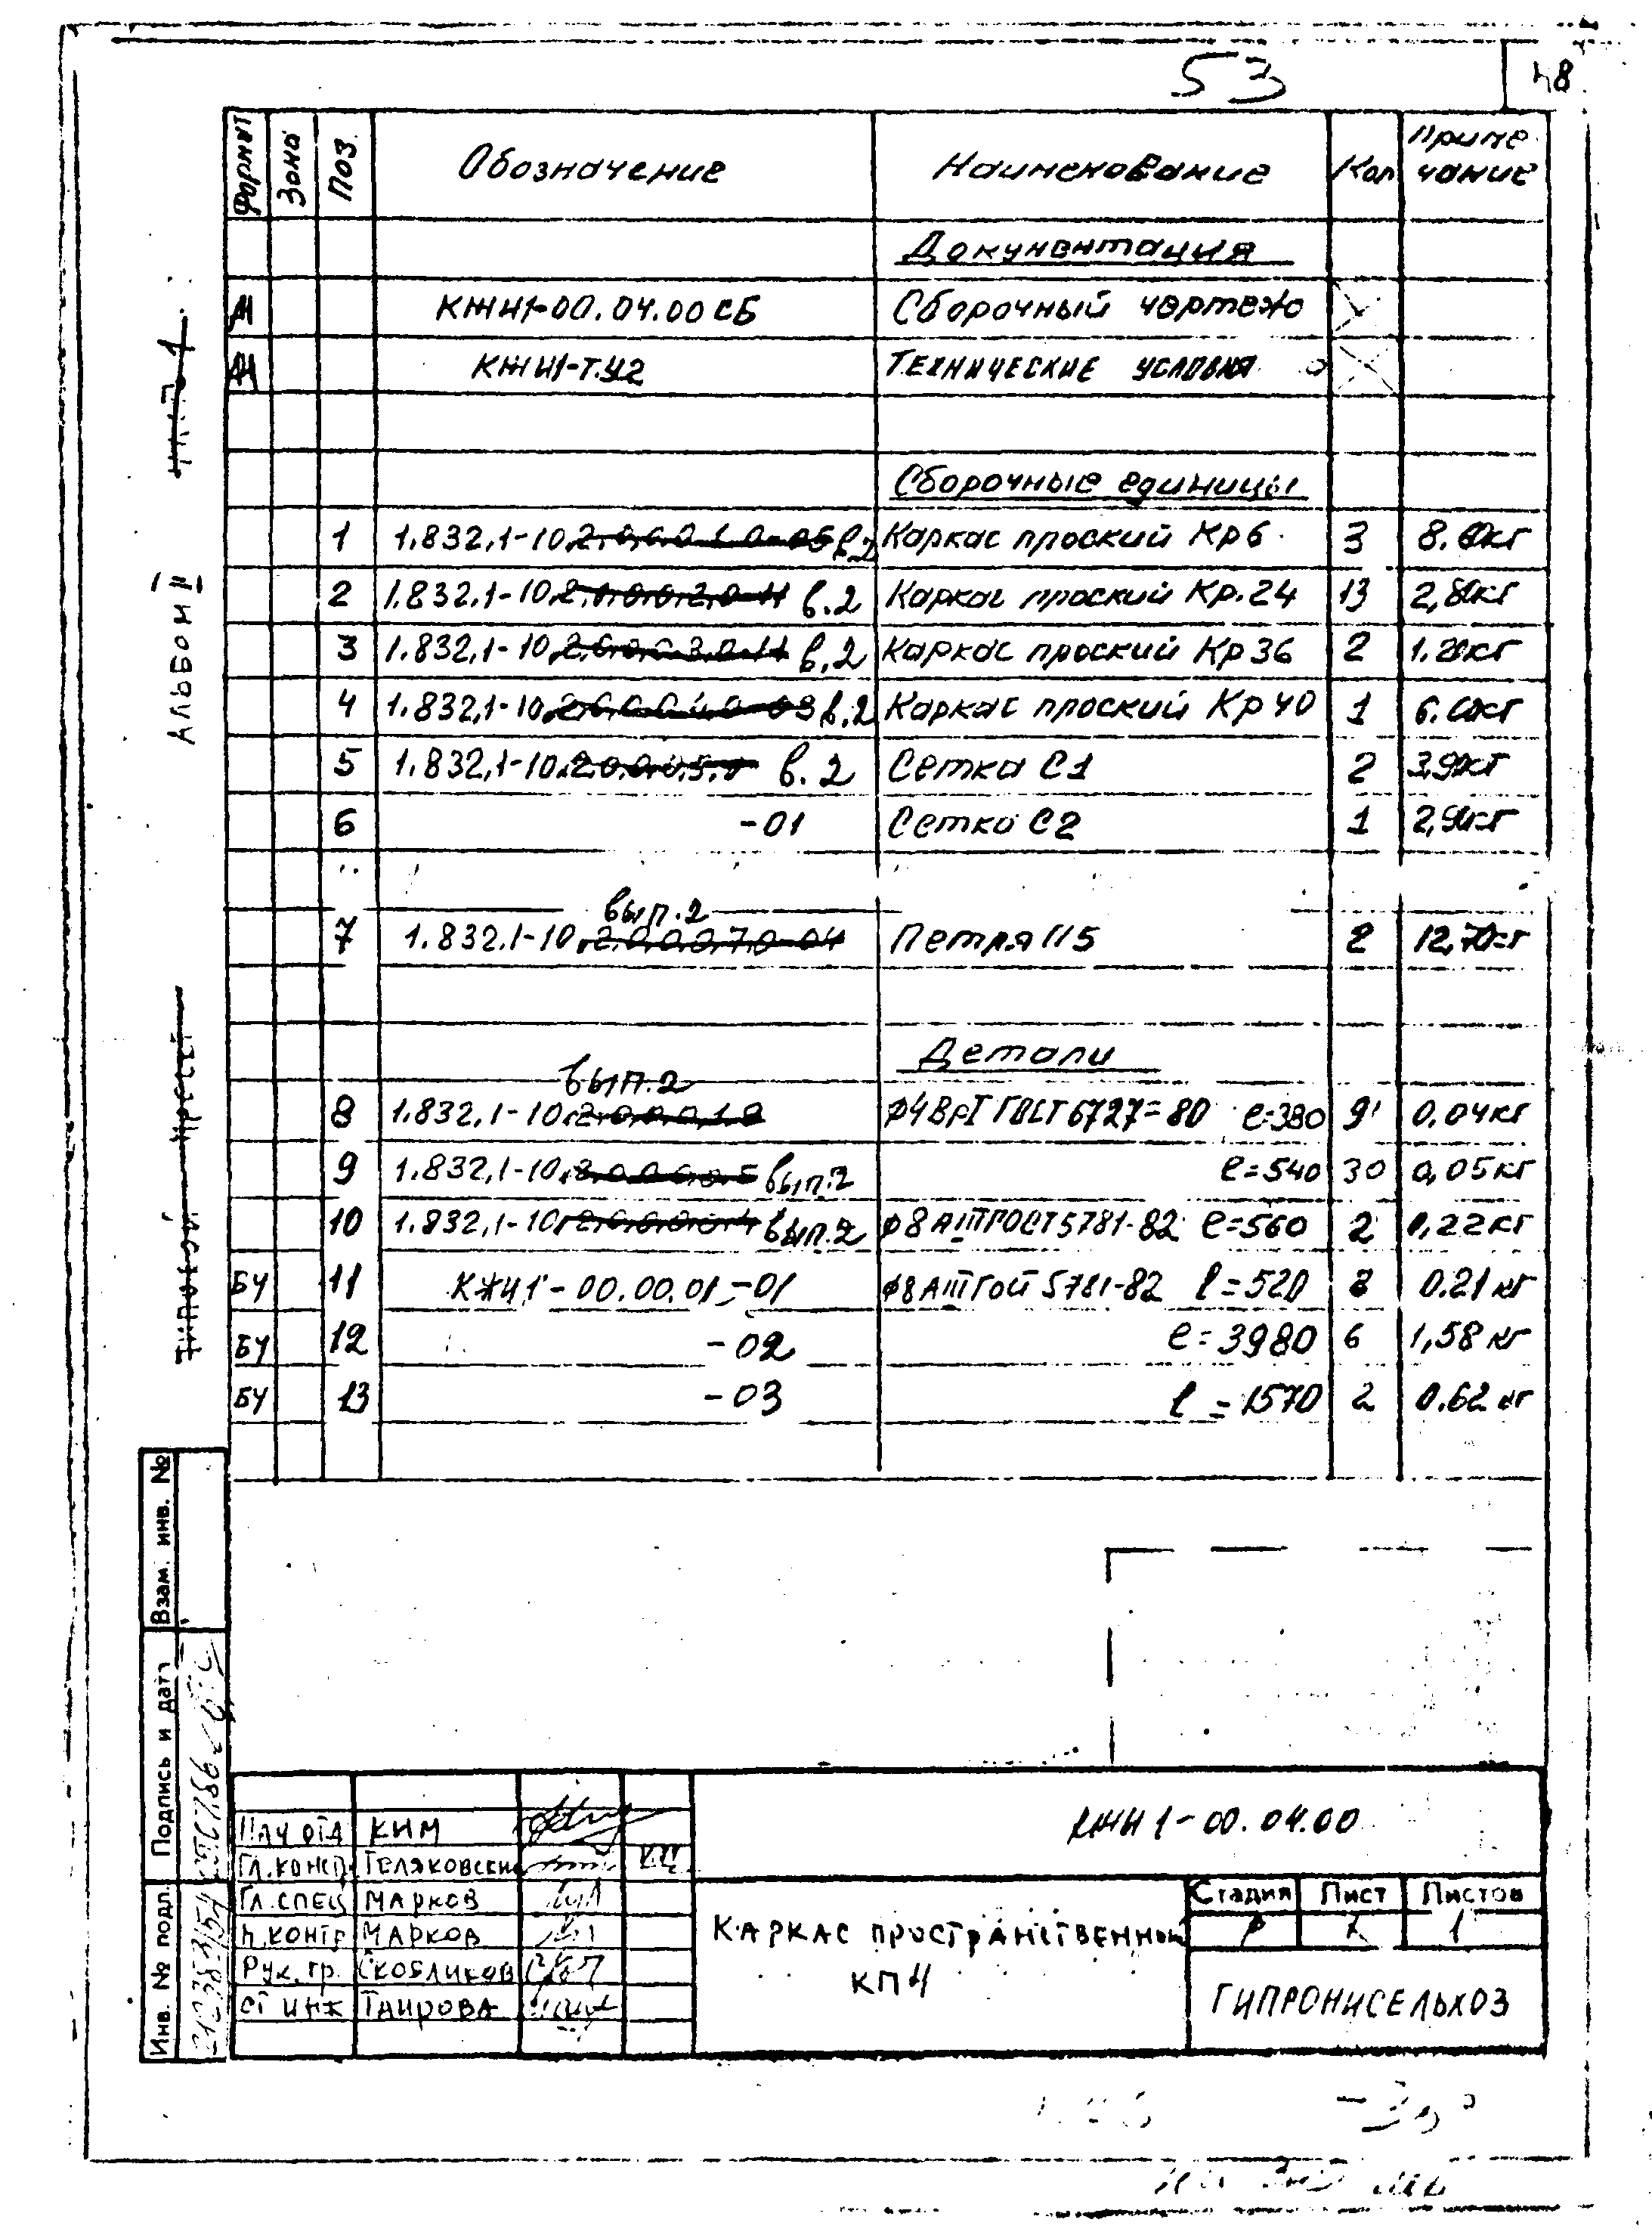 53
48
Формат Зона Поз. Обозначение Наименование Кол Приме чание
Документация
КЖИ1-00.04.00 СБ Сборочный чертеж
КЖИ1-ТУ2 Технические условия
Сборочные единицы
1 1.832.1-10.2.0.0.0.1.0-05 в.2 Каркас плоский Кр6 3
2 1.832.1-10.2.0.0.0.2.0-11 в.2 Каркас плоский Кр.24 13
3 1.832.1-10.2.0.0.0.3.0-11 в.2 Каркас плоский Кр36 2
4 1.832.1-10.2.0.0.0.4.0-03 в.2 Каркас плоский Кр40 1
5 1.832.1-10.2.0.0.0.5.0 в.2 Сетка С1 2
6 -01 Сетка С2 1
вып.2
7 1.832.1-10.2.0.0.0.7.0-04 Петля П5 2
Детали
вып.2
8 1.832.1-10.2.0.0.0.1.0 ф4ВрI ГОСТ 6727-80 ℓ=380 9 0.04кг
9 1.832.1-10.2.0.0.0.0.5 вып.2 ℓ=540 30 0,05кг
10 1.832.1-10.2.0.0.0.0.4 вып.2 ф8АIII ГОСТ 5781-82 ℓ=560 2 0,22кг
БЧ 11 КЖИ1-00.00.01-01 ф8АIII ГОСТ 5781-82 ℓ=520 0.21 кг
БЧ 12 -02 ℓ=3980 6 1,58 кг
БЧ 13 -03 ℓ=1570 2 0.62 кг
Альбом II
Типовой проект
Взам. инв. №
Подпись и дата
Инв. № подл.
КЖИ1-00.04.00
Нач отд Ким
Гл. конст. Теляковский
Гл. спец Марков
Н. контр Марков
Рук. гр. Скобликов
Ст инж Таирова
Каркас пространственный
КП4
Стадия Лист Листов
Р 1
ГИПРОНИСЕЛЬХОЗ